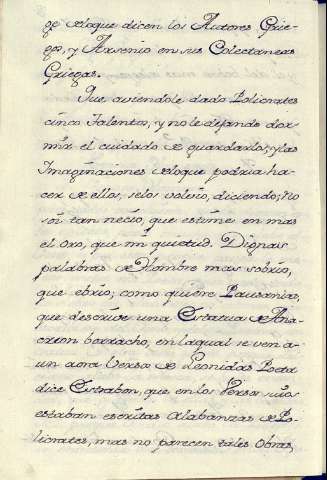 de loque dicen los Autores Grie-
gos, y Arsenio en sus Colectaneas
Griegas.
Que aviendole dado Policrates
cinco Talentos, y no le dejando dor-
mir el cuidado de guardarlos, y las
Imaginaciones de loque podria ha-
cer de ellos, selos volvió, diciendo; No
soi tan necio, que estime en mas
el oro, que mi quietud. Dignas
palabras de Hombre mas sobrio,
que ebrio; como quiere Pausanias,
que descrive una Estatua de Ana-
creon borracho, en laqual se ven a-
un aora Versos de Leonidas Poeta
dice Estrabon, que en los Versos suios
estaban escritas Alabanzas de Po-
licrates, mas no parecen tales Obras,